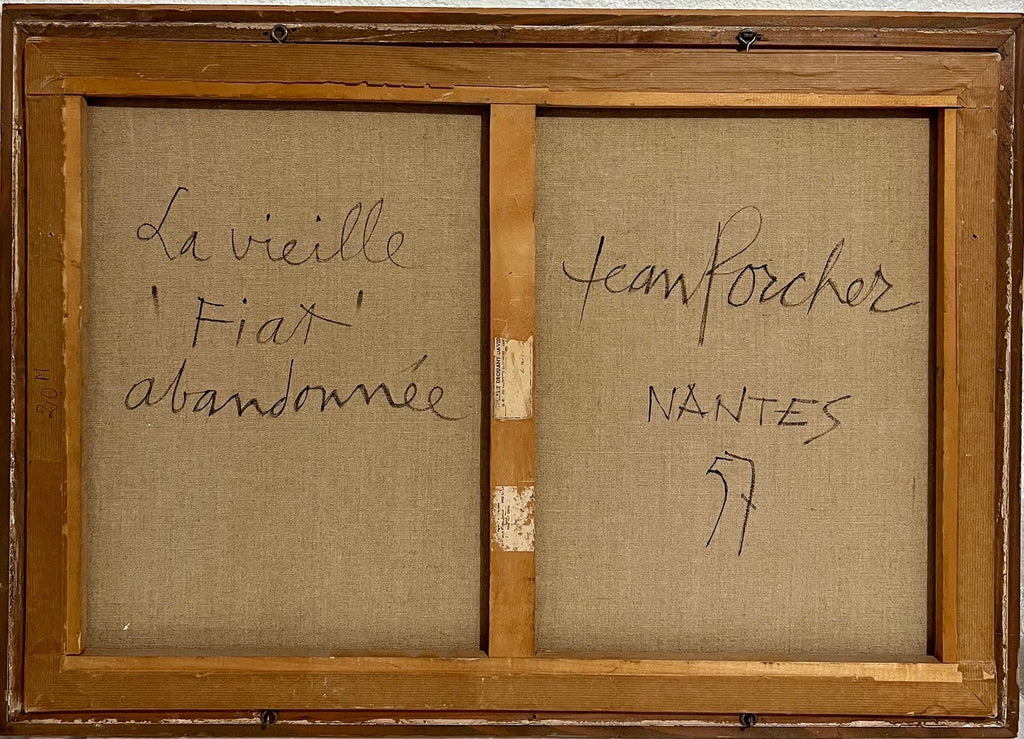 La vieille
'Fiat'
abandonnée
Jean Porcher
NANTES
57
20 M